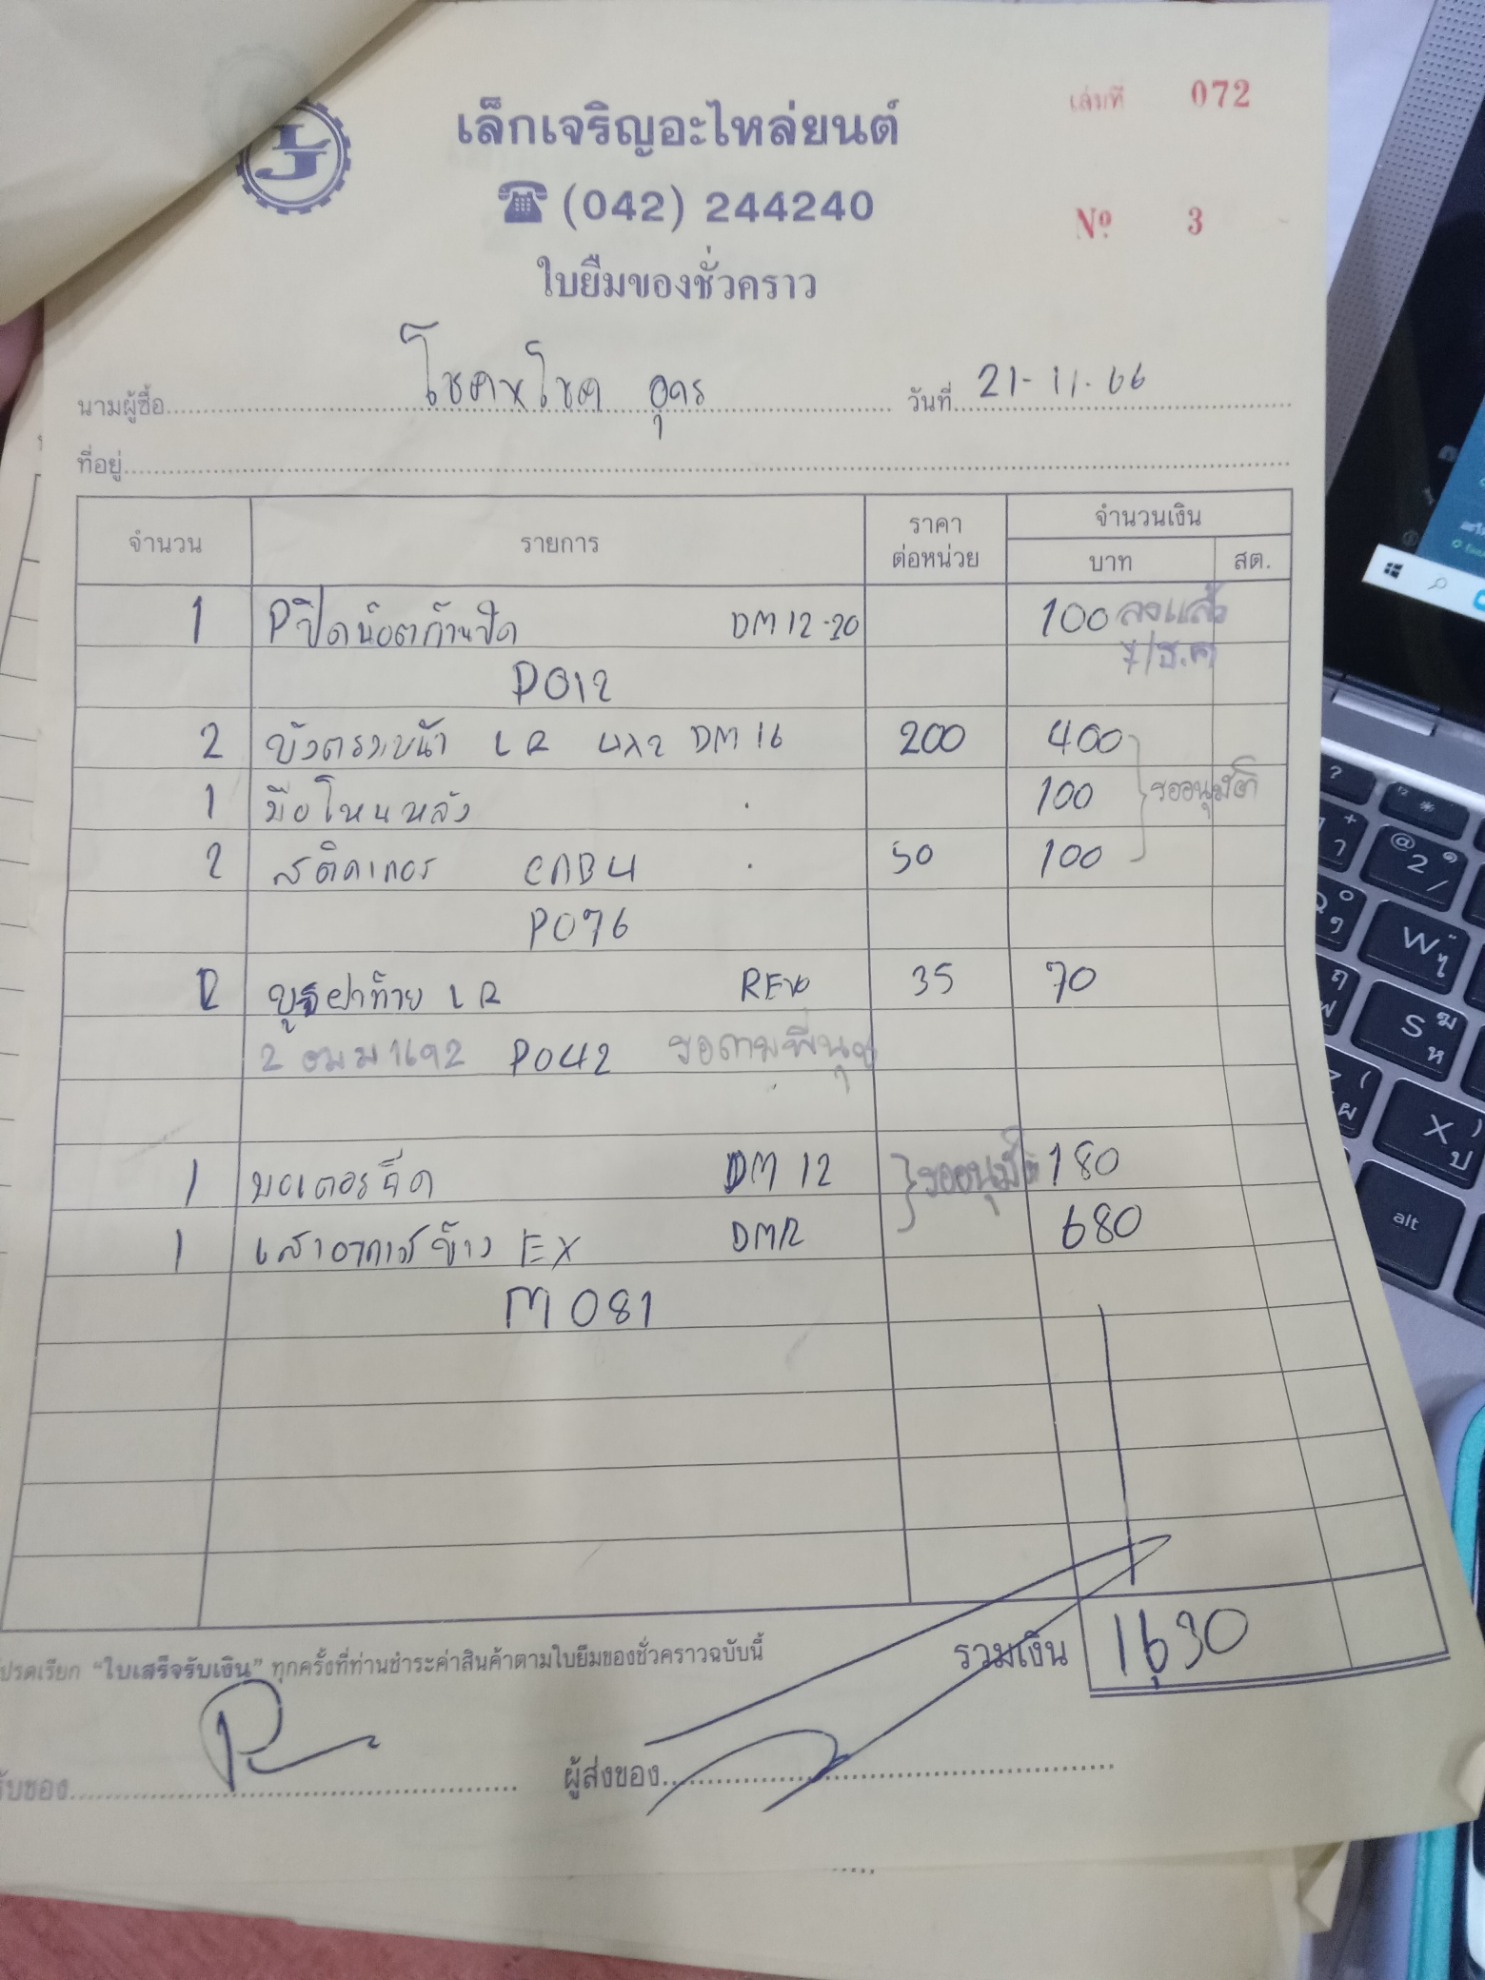 เล่มที่ 072
เล็กเจริญอะไหล่ยนต์
LJ
☎ (042) 244240
Nº 3
ใบยืมของชั่วคราว
นามผู้ซื้อ โชคหโชค อุดร วันที่ 21-11-66
ที่อยู่
จำนวน รายการ ราคาต่อหน่วย จำนวนเงิน
บาท สต.
1 Pปิดน๊อตก้านปัด DM12-20 100 ลงแล้ว
7/ธ.ค
P012
2 บังตรงหน้า LR DM16 200 400
1 มือโหนหลัง . 100 รออนุมัติ
2 สติคเกอร์ CAB4 . 50 100
P076
2 หูฝาท้าย LR REVO 35 70
P042 รอถามพี่นุช
1 มอเตอร์ฉีด DM12 รออนุมัติ 180
1 เสาอากาศข้าง EX DM12 680
M081
โปรดเรียก “ใบเสร็จรับเงิน” ทุกครั้งที่ท่านชำระค่าสินค้าตามใบยืมของชั่วคราวฉบับนี้ รวมเงิน 1630
รับของ ผู้ส่งของ